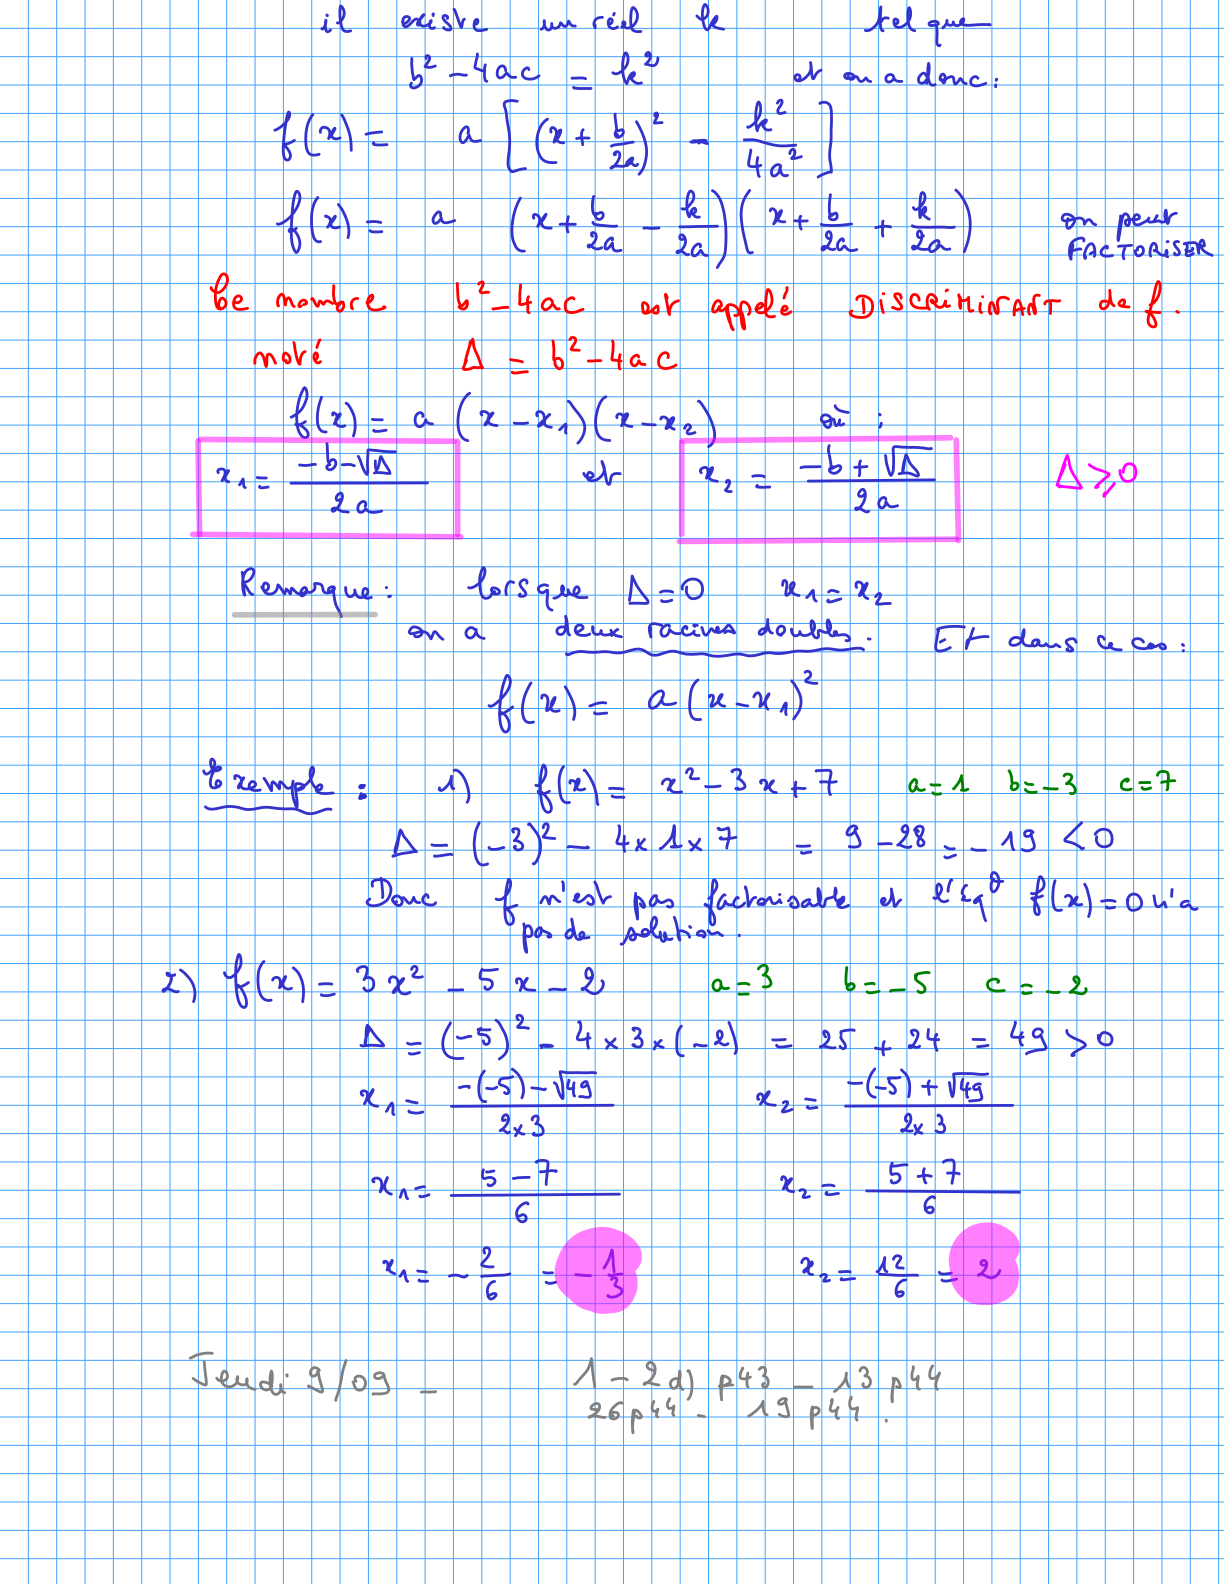 il existe un réel k tel que
b² - 4ac = k² et on a donc:
f(x) = a [(x + b/2a)² - k²/4a²]
f(x) = a (x + b/2a - k/2a)(x + b/2a + k/2a) on peut FACTORiSER
Ce nombre b² - 4ac est appelé DiSCRiMiNANT de f.
noté Δ = b² - 4ac
f(x) = a (x - x₁)(x - x₂) où :
x₁ = (-b - √Δ)/2a et x₂ = (-b + √Δ)/2a Δ ⩾ 0
Remarque: lorsque Δ = 0 x₁ = x₂
on a deux racines doubles. Et dans ce cas:
f(x) = a (x - x₁)²
Exemple : 1) f(x) = x² - 3x + 7 a = 1 b = -3 c = 7
Δ = (-3)² - 4 × 1 × 7 = 9 - 28 = -19 < 0
Donc f n'est pas factorisable et l'éq° f(x) = 0 n'a
pas de solution.
2) f(x) = 3x² - 5x - 2 a = 3 b = -5 c = -2
Δ = (-5)² - 4 × 3 × (-2) = 25 + 24 = 49 > 0
x₁ = (-(-5) - √49)/(2×3) x₂ = (-(-5) + √49)/(2×3)
x₁ = (5 - 7)/6 x₂ = (5 + 7)/6
x₁ = -2/6 = -1/3 x₂ = 12/6 = 2
Jeudi 9/09 - 1 - 2d) p43 - 13 p44
26 p44 - 19 p44.